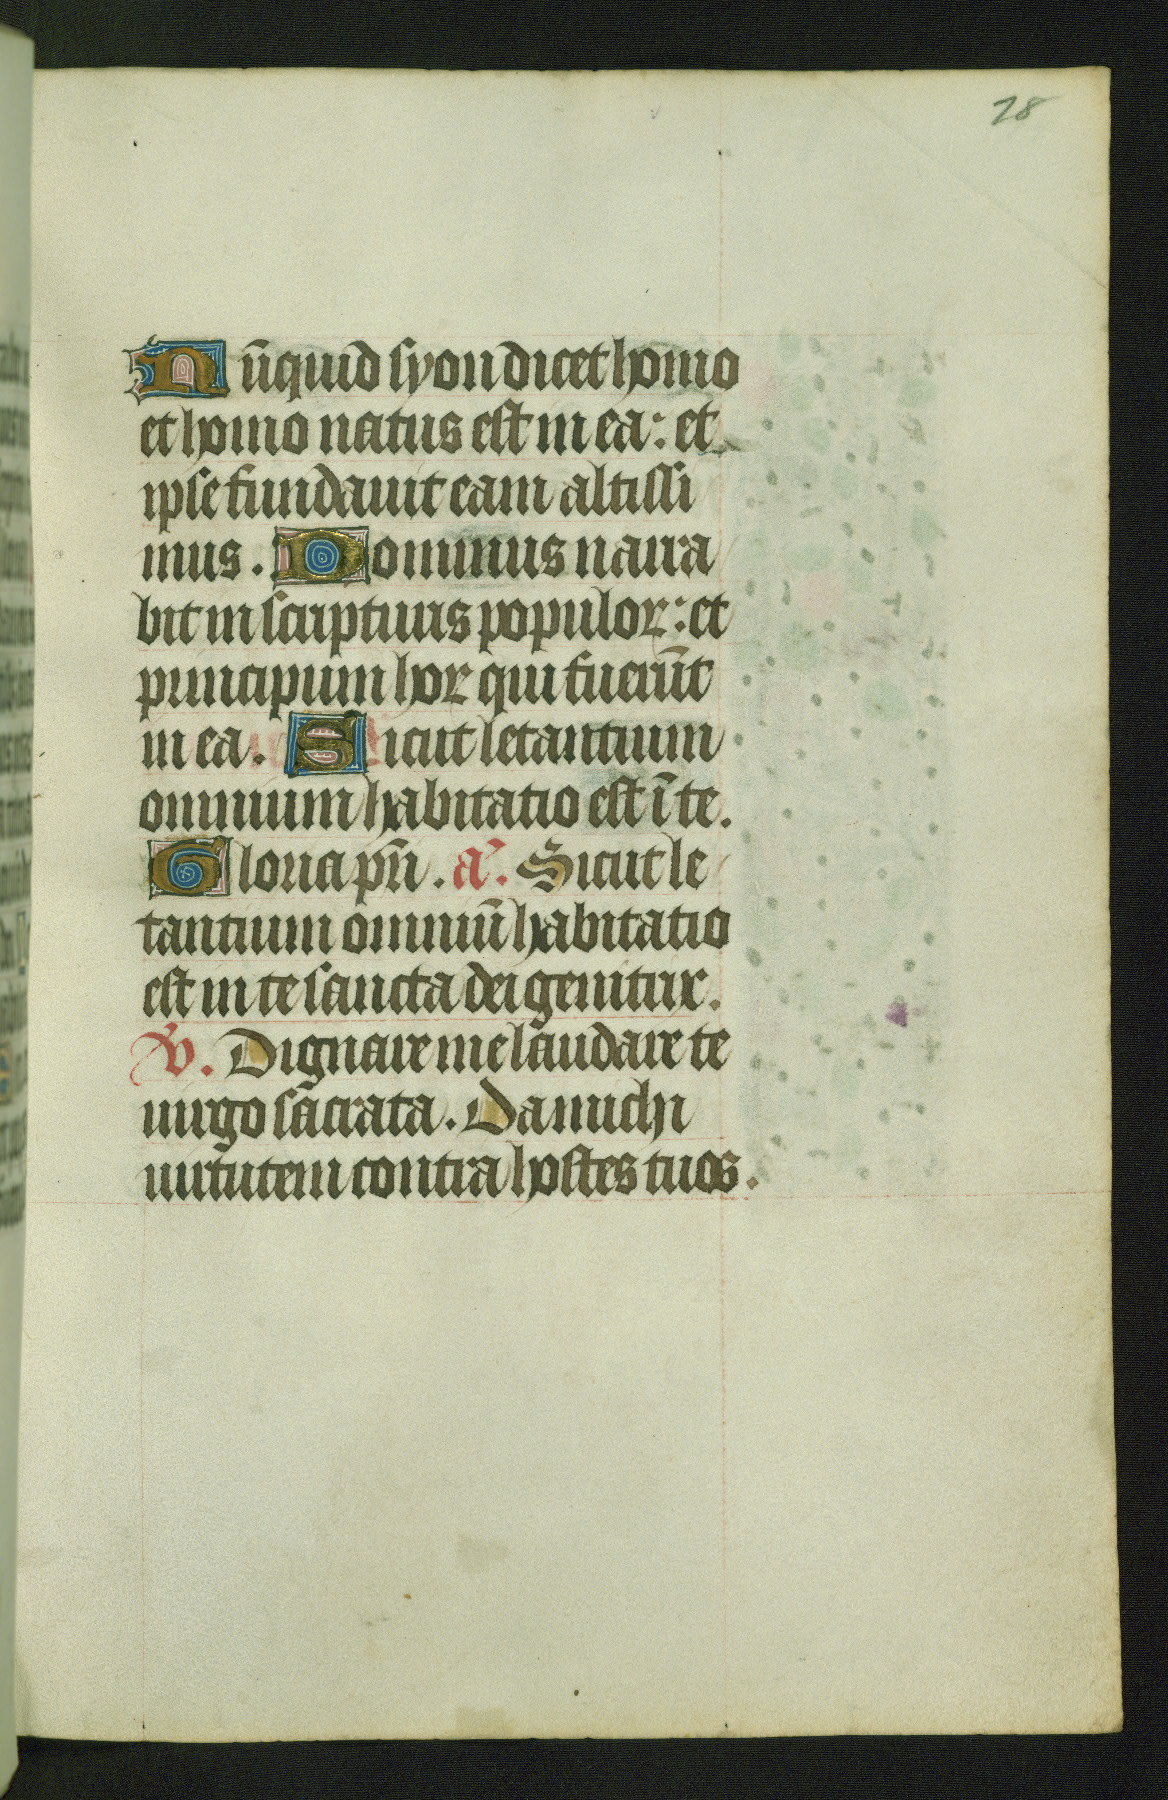 28
Nūquid syon dicet homo
et homo natus est in ea: et
ipse fundauit eam altissi
mus. Dominus narra
bit in scripturis populoꝝ: et
principum hoꝝ qui fuerūt
in ea. Sicut letantium
omnium habitatio est ī te.
Gloria pr̄i. a᷑. Sicut le
tantium omniū habitatio
est in te sancta dei genitrix.
V. Dignare me laudare te
uirgo sacrata. Da michi
uirtutem contra hostes tuos.